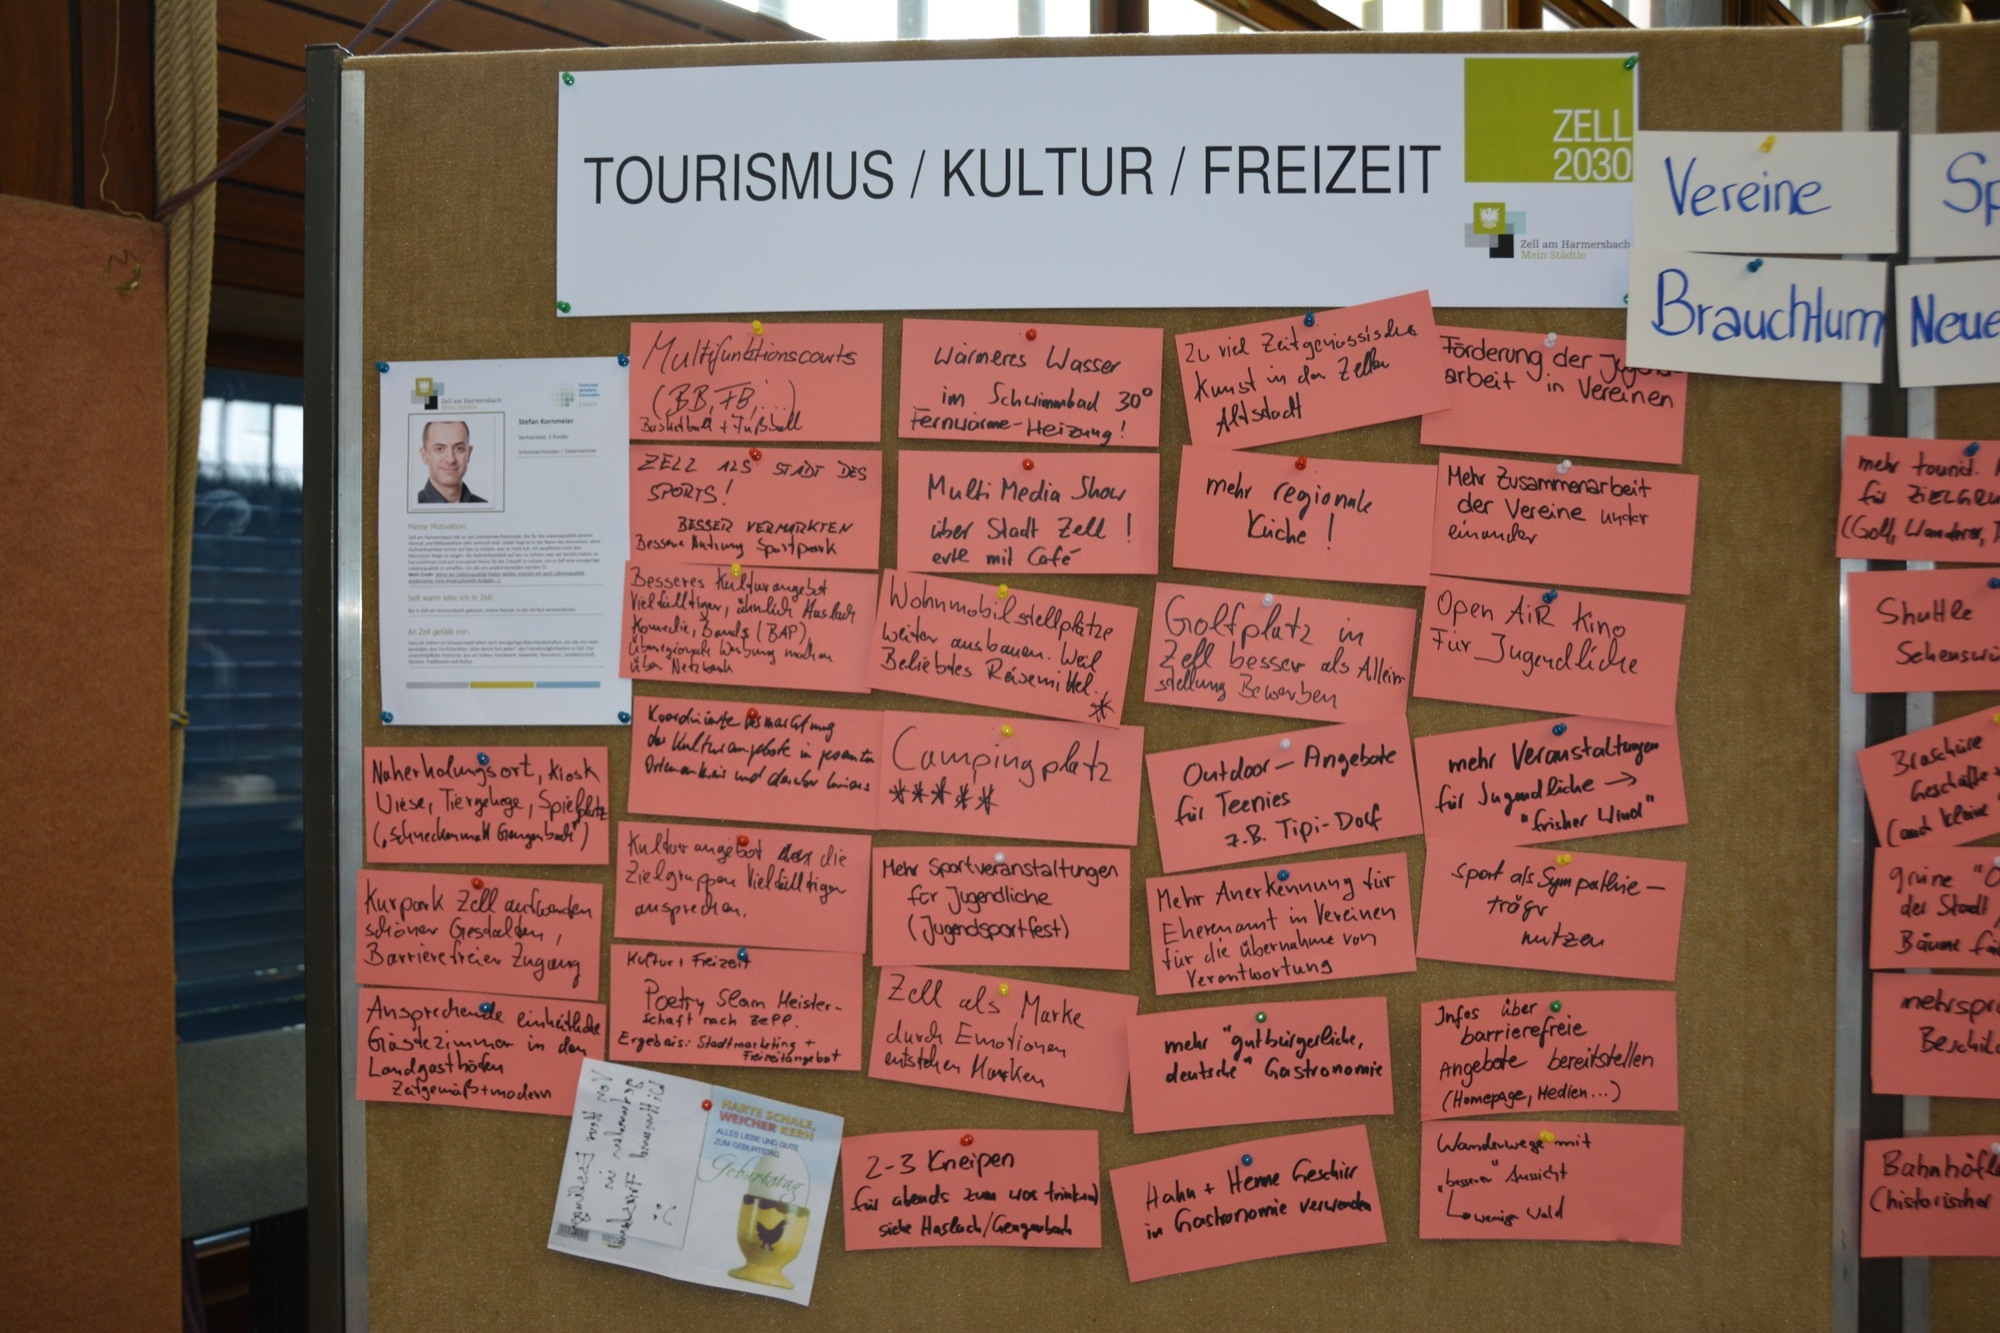 TOURISMUS / KULTUR / FREIZEIT
ZELL
2030
Zell am Harmersbach
Mein Städtle
Vereine
Brauchtum
Sp
Neue
Zell am Harmersbach
Mein Städtle
Stefan Kornmeier
Verheiratet, 2 Kinder
Schreinermeister / Unternehmer
Meine Motivation:
Seit wann lebe ich in Zell:
An Zell gefällt mir:
Naherholungsort, Kiosk
Wiese, Tiergehege, Spielplatz
("Schneckenmatt Gengenbach")
Kurpark Zell
schöner Gestalten,
Barrierefreier Zugang
Ansprechende einheitliche
Gästezimmer in den
Landgasthöfen
Zeitgemäß+modern
Multifunktionscourts
(BB, FB, ...)
Basketball + Fußball
ZELL ALS STADT DES
SPORTS!
BESSER VERMARKTEN
Bessere Nutzung Sportpark
Besseres Kulturangebot
Vielfälltiger, ähnlich Haslach
Komedie, Bands (BAP),
Überregionale Werbung machen
über Netzwerk
Koordinierte Vermarktung
der Kulturangebote im gesamten
Ortenaukreis und darüber hinaus
Kulturangebot die
Zielgruppen Vielfälltiger
ansprechen.
Kultur, Freizeit
Poetry Slam Meister-
schaft nach Zell.
Ergebnis: Stadtmarketing +
Freizeitangebot
HARTE SCHALE,
WEICHER KERN
ALLES LIEBE UND GUTE
ZUM GEBURTSTAG
Geburtstag
Wärmeres Wasser
im Schwimmbad 30°
Fernwärme-Heizung!
Multi Media Show
über Stadt Zell!
evtl mit Café
Wohnmobilstellplätze
weiter ausbauen. Weil
Beliebtes Reisemittel.
*
Campingplatz
*****
Mehr Sportveranstaltungen
für Jugendliche
(Jugendsportfest)
Zell als Marke
durch Emotionen
entstehen Marken
2-3 Kneipen
für abends zum was trinken
siehe Haslach/Gengenbach
Zu viel Zeitgenössische
Kunst in der Zeller
Altstadt
mehr regionale
Küche!
Golfplatz in
Zell besser als Allein-
stellung Bewerben
Outdoor-Angebote
für Teenies
z.B. Tipi-Dorf
Mehr Anerkennung für
Ehrenamt in Vereinen
für die übernahme von
Verantwortung
mehr "gutbürgerliche,
deutsche" Gastronomie
Hahn + Henne Geschirr
in Gastronomie verwenden
Förderung der Jugend-
arbeit in Vereinen
Mehr Zusammenarbeit
der Vereine unter
einander
Open Air Kino
Für Jugendliche
mehr Veranstaltungen
für Jugendliche →
"frisher Wind"
Sport als Sympathie-
träger
nutzen
Infos über
barrierefreie
Angebote bereitstellen
(Homepage, Medien...)
Wanderwege mit
"besserer" Aussicht
weniger Wald
mehr tourist.
für ZIELGRU
(Golf, Wanderer,
Shuttle
Sehenswü
Broschüre
Geschäfte
(auch kleine
grüne "O
der Stadt
Bäume fü
mehrspra
Beschild
Bahnhöfle
(historischer